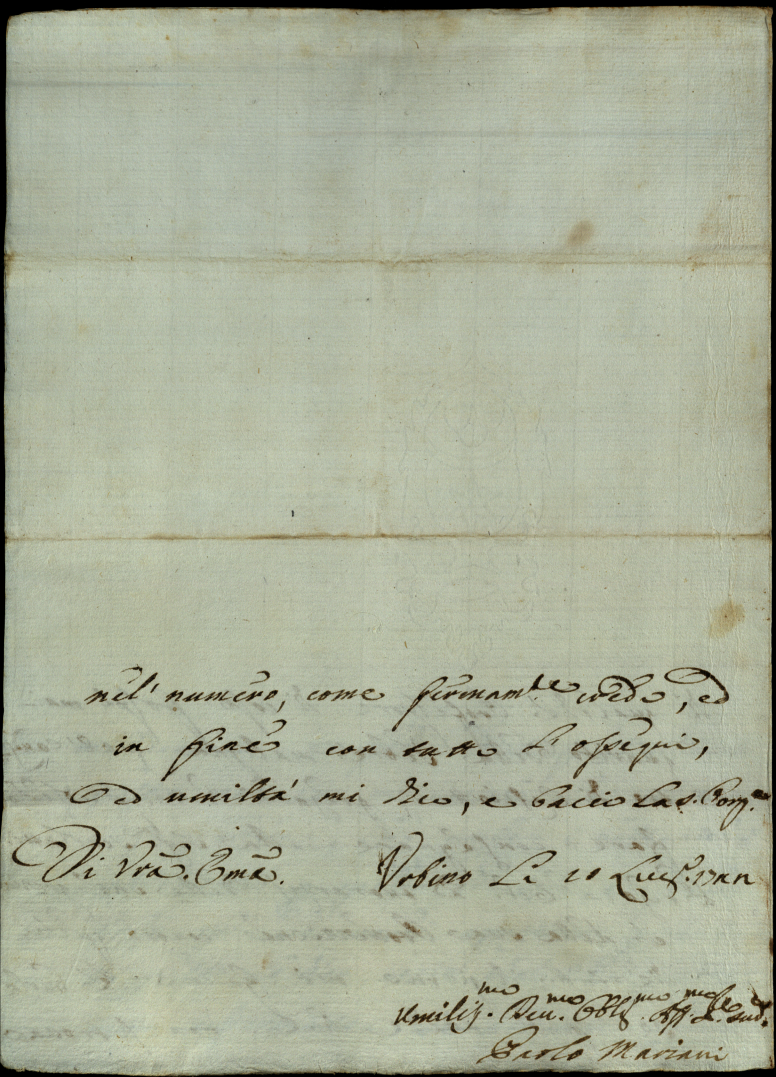 nel' numero, come fermam.te credo, ed
in fine con tutto L'ossequi,
ed umiltà mi dico, e bacio La S. Porp.a
Di Vrã. Emã. Urbino Li 10
Umiliss.mo Deu.mo Obl.mo
Paolo Mariani